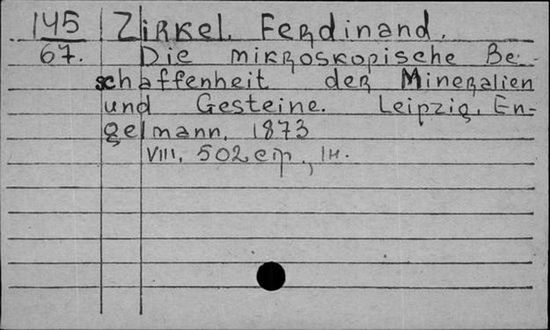 145 Zirkel, Ferdinand.
67. Die mikroskopische Be-
schaffenheit der Mineralien
und Gesteine. Leipzig, En-
gelmann, 1873
VIII, 502 стр., IH.